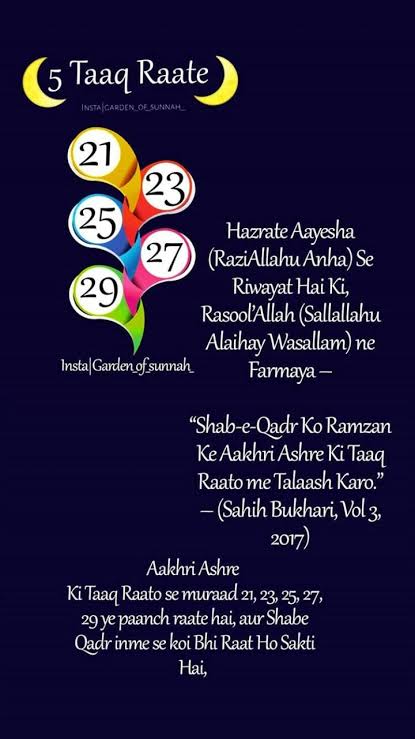 5 Taaq Raate
INSTA|GARDEN_OF_SUNNAH_
21
23
25
27
29
Insta|Garden_of_sunnah_
Hazrate Aayesha
(RaziAllahu Anha) Se
Riwayat Hai Ki,
Rasool'Allah (Sallallahu
Alaihay Wasallam) ne
Farmaya –
“Shab-e-Qadr Ko Ramzan
Ke Aakhri Ashre Ki Taaq
Raato me Talaash Karo.”
– (Sahih Bukhari, Vol 3,
2017)
Aakhri Ashre
Ki Taaq Raato se muraad 21, 23, 25, 27,
29 ye paanch raate hai, aur Shabe
Qadr inme se koi Bhi Raat Ho Sakti
Hai,